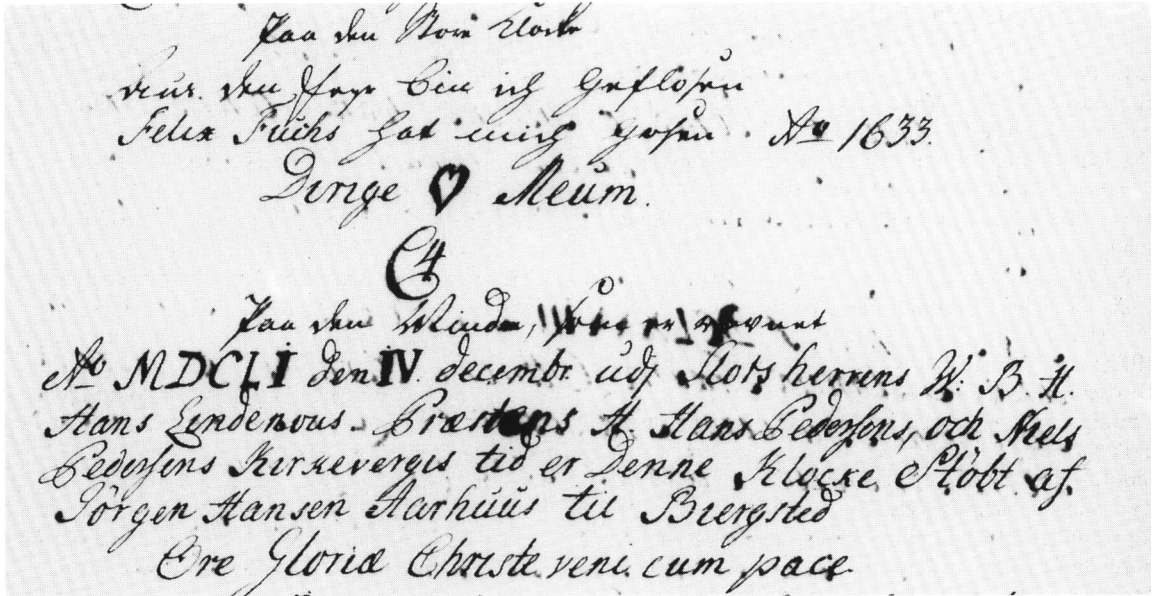 Paa den Store Klocke
Aus den feyr bin ich geflosen
Felix Fuchs hat mich gosen Aͦ 1633.
Dirige ♥ Meum.
C4
Paa den Mindre, som er revnet
Aͦ MDCLI den IV. decembr. udj Slots herrens W: B. H.
Hans Lindenous. Præstens H. Hans Pedersens, och Niels
Pedersens Kirkevergis tid er Denne Klocke Stöbt af.
Jörgen Hansen Aarhuus til Biergsted
Ore Gloriæ Christe veni cum pace